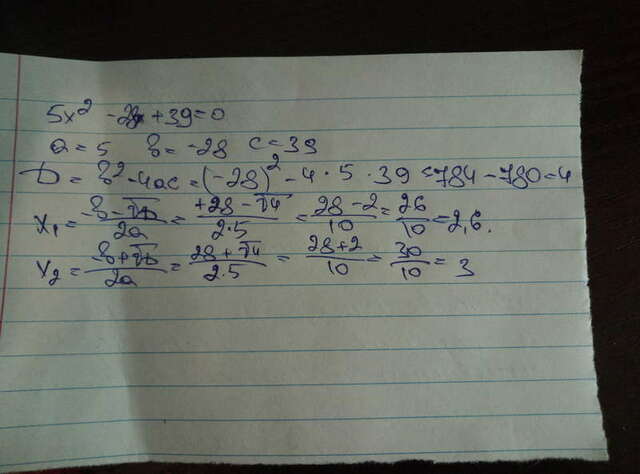 5x² - 28x + 39 = 0
a = 5 b = -28 c = 39
D = b² - 4ac = (-28)² - 4 · 5 · 39 = 784 - 780 = 4
x₁ = (-b - √D)/2a = (+28 - √4)/2·5 = (28 - 2)/10 = 26/10 = 2,6.
x₂ = (-b + √D)/2a = (28 + √4)/2·5 = (28 + 2)/10 = 30/10 = 3